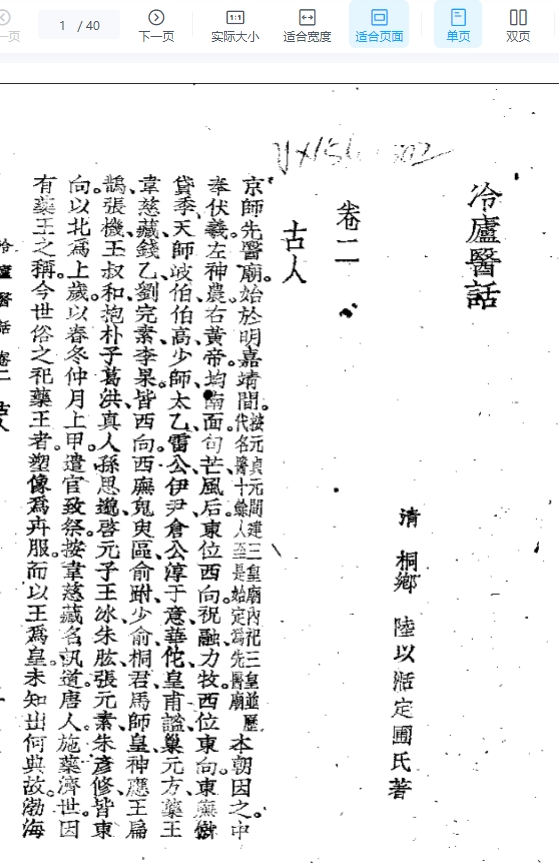 一页
1 / 40
下一页
1:1
实际大小
适合宽度
适合页面
单页
双页
冷廬醫話
清 桐鄉 陸以湉定圃氏著
卷二
古人
京師先醫廟。始於明嘉靖間。按元貞元間建三皇廟內祀三皇並歷代名醫十餘人至是始定爲先醫廟 本朝因之。中
奉伏羲、左神農、右黃帝。均南面。句芒風后東位西向。祝融力牧西位東向。東廡僦
貸季、天師岐伯、伯高、少師、太乙、雷公、伊尹、倉公淳于意、華佗、皇甫謐、巢元方、藥王
韋慈藏、錢乙、劉完素、李杲。皆西向。西廡鬼臾區、俞跗、少俞、桐君、馬師皇、神應王扁
鵲、張機、王叔和、抱朴子葛洪、真人孫思邈、啓元子王冰、朱肱、張元素、朱彥修。皆東
向。以北爲上。歲以春冬仲月上甲。遣官致祭。按韋慈藏名訊道。唐人。施藥濟世。因
有藥王之稱。今世俗之祀藥王者。塑像爲卉服。而以王爲皇。未知出何典故。渤海
冷廬醫話 卷二 古人